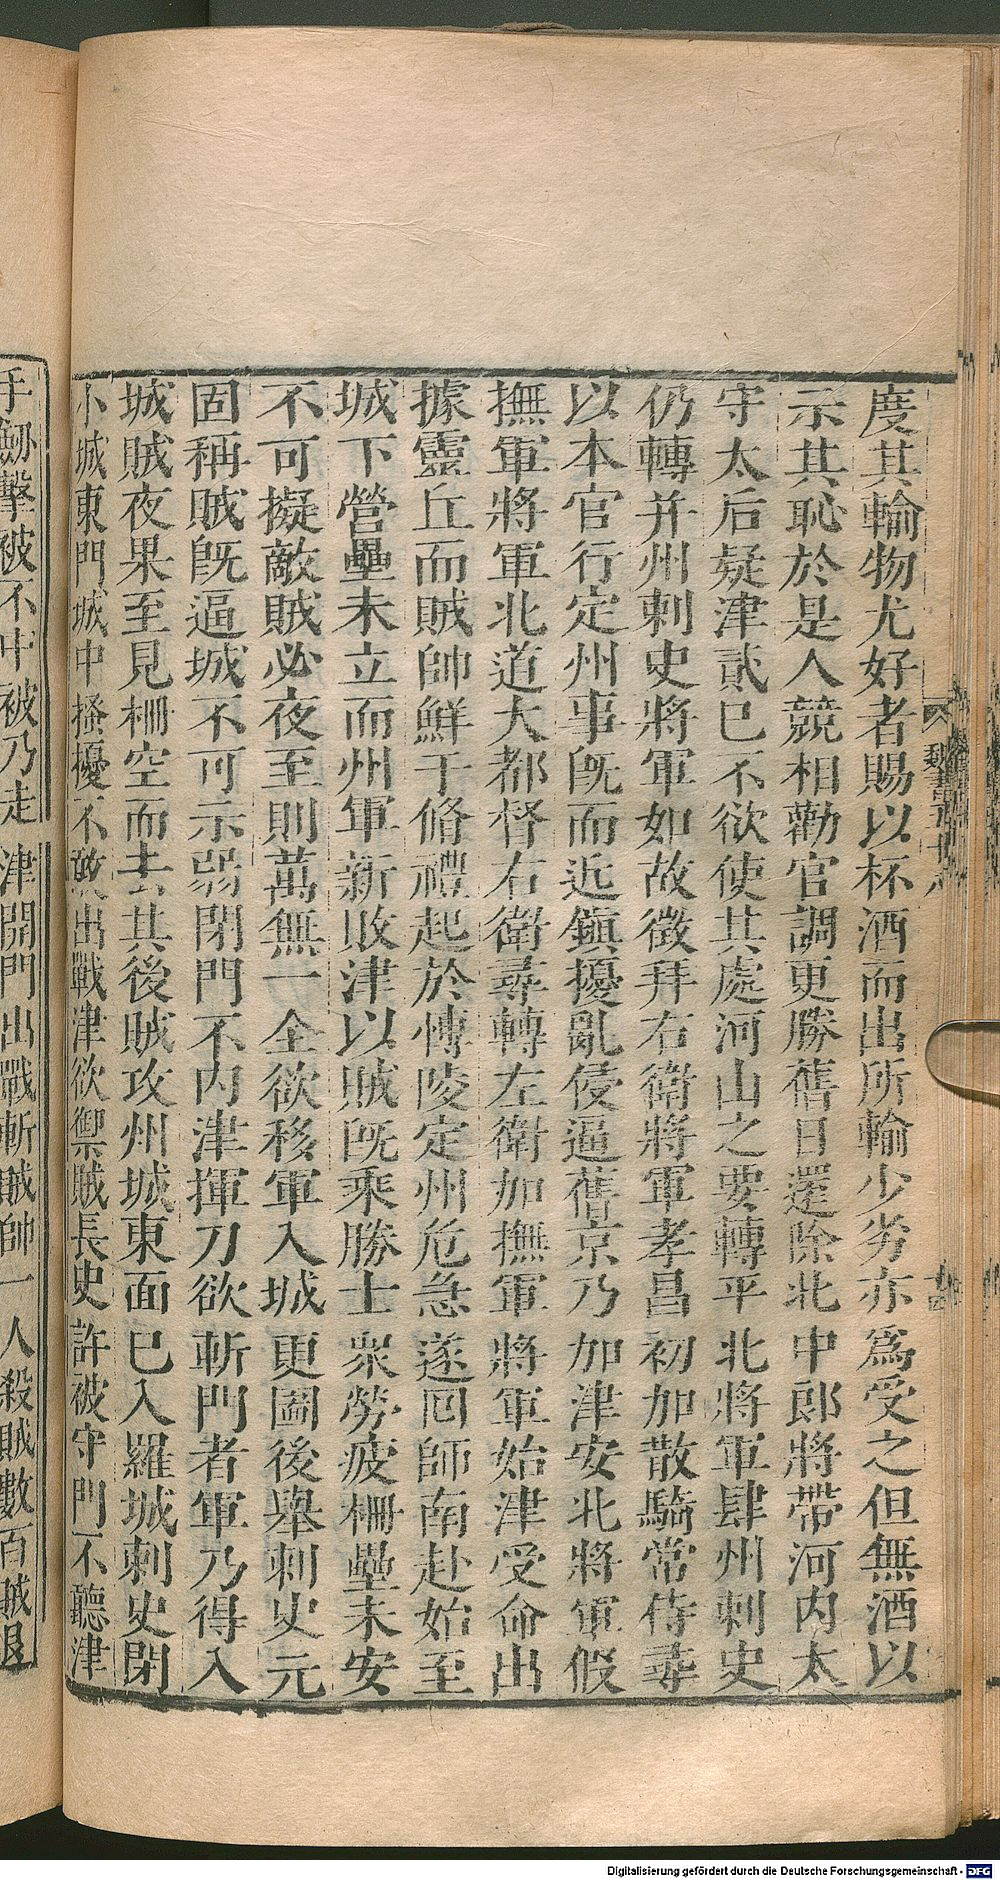 度其輸物尤好者賜以杯酒而出所輸少劣亦爲受之但無酒以
示其恥於是人競相勸官調更勝舊日還除北中郎將帶河內太
守太后疑津貳已不欲使其處河山之要轉平北將軍肆州刺史
仍轉并州刺史將軍如故徵拜右衛將軍孝昌初加散騎常侍尋
以本官行定州事旣而近鎮擾亂侵逼舊京乃加津安北將軍假
撫軍將軍北道大都督右衛尋轉左衛加撫軍將軍始津受命出
據靈丘而賊帥鮮于脩禮起於慱陵定州危急遂囘師南赴始至
城下營壘未立而州軍新敗津以賊旣乘勝士衆勞疲柵壘未安
不可擬敵賊必夜至則萬無一全欲移軍入城更圖後舉刺史元
固稱賊旣逼城不可示弱閉門不內津揮刀欲斬門者軍乃得入
城賊夜果至見柵空而去其後賊攻州城東面巳入羅城刺史閉
小城東門城中搔擾不敢出戰津欲禦賊長史許被守門不聽津
手劒擊被不中被乃走津開門出戰斬賊帥一人殺賊數百賊退
魏書
Digitalisierung gefördert durch die Deutsche Forschungsgemeinschaft - DFG